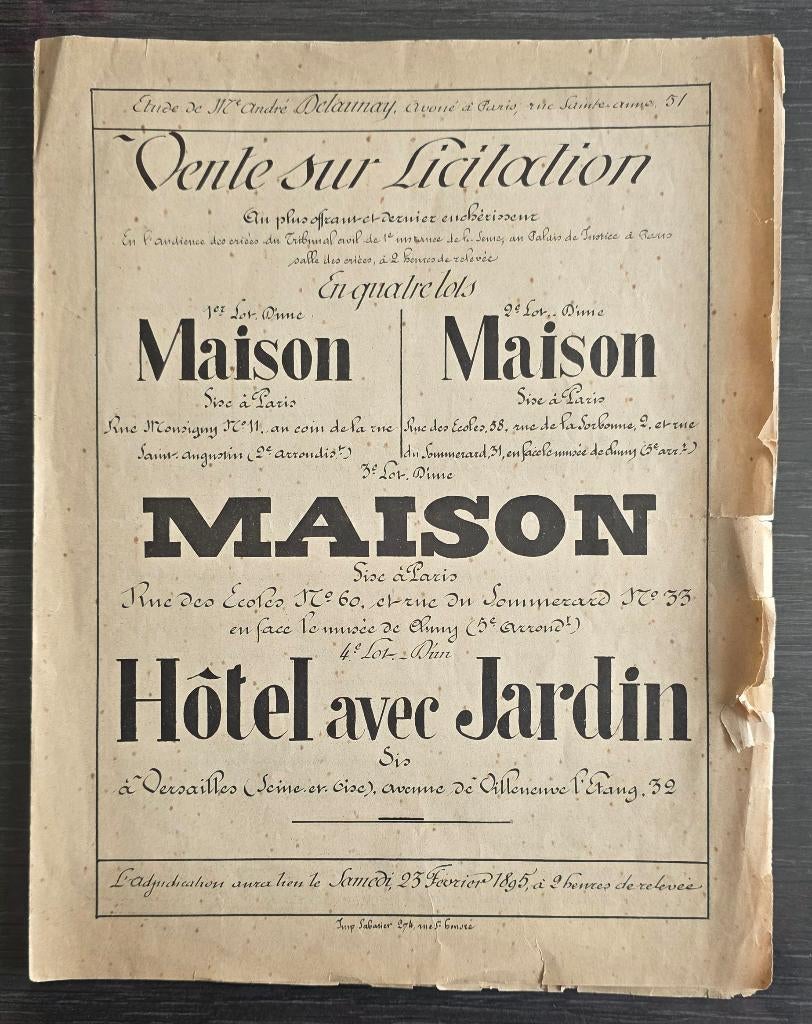 Etude de Mᵉ André Delaunay, avoué à Paris, rue Sainte-anne, 51
Vente sur Licitation
Au plus offrant et dernier enchérisseur
En l'audience des criées du Tribunal civil de 1ᵉ instance de la Seine, au Palais de Justice à Paris
salle des criées, à 2 heures de relevée
En quatre lots
1ᵉʳ Lot. D'une
Maison
Sise à Paris
Rue Monsigny Nº 11, au coin de la rue
Saint-Augustin (2ᵉ arroudisᵗ)
2ᵉ Lot. D'une
Maison
Sise à Paris
Rue des Ecoles, 58, rue de la Sorbonne, 2, et rue
du Sommerard, 31, en face le musée de Cluny (5ᵉ arrᵗ)
3ᵉ Lot. D'une
MAISON
Sise à Paris
Rue des Ecoles Nº 60, et rue du Sommerard Nº 33
en face le musée de Cluny (5ᵉ Arrondᵗ)
4ᵉ Lot. D'un
Hôtel avec Jardin
Sis
à Versailles (Seine-et-Oise), avenue de Villeneuve l'Etang, 32
L'adjudication aura lieu le Samedi, 23 Février 1895, à 2 heures de relevée
Imp. Sabatier. 274, rue Sᵗ honoré